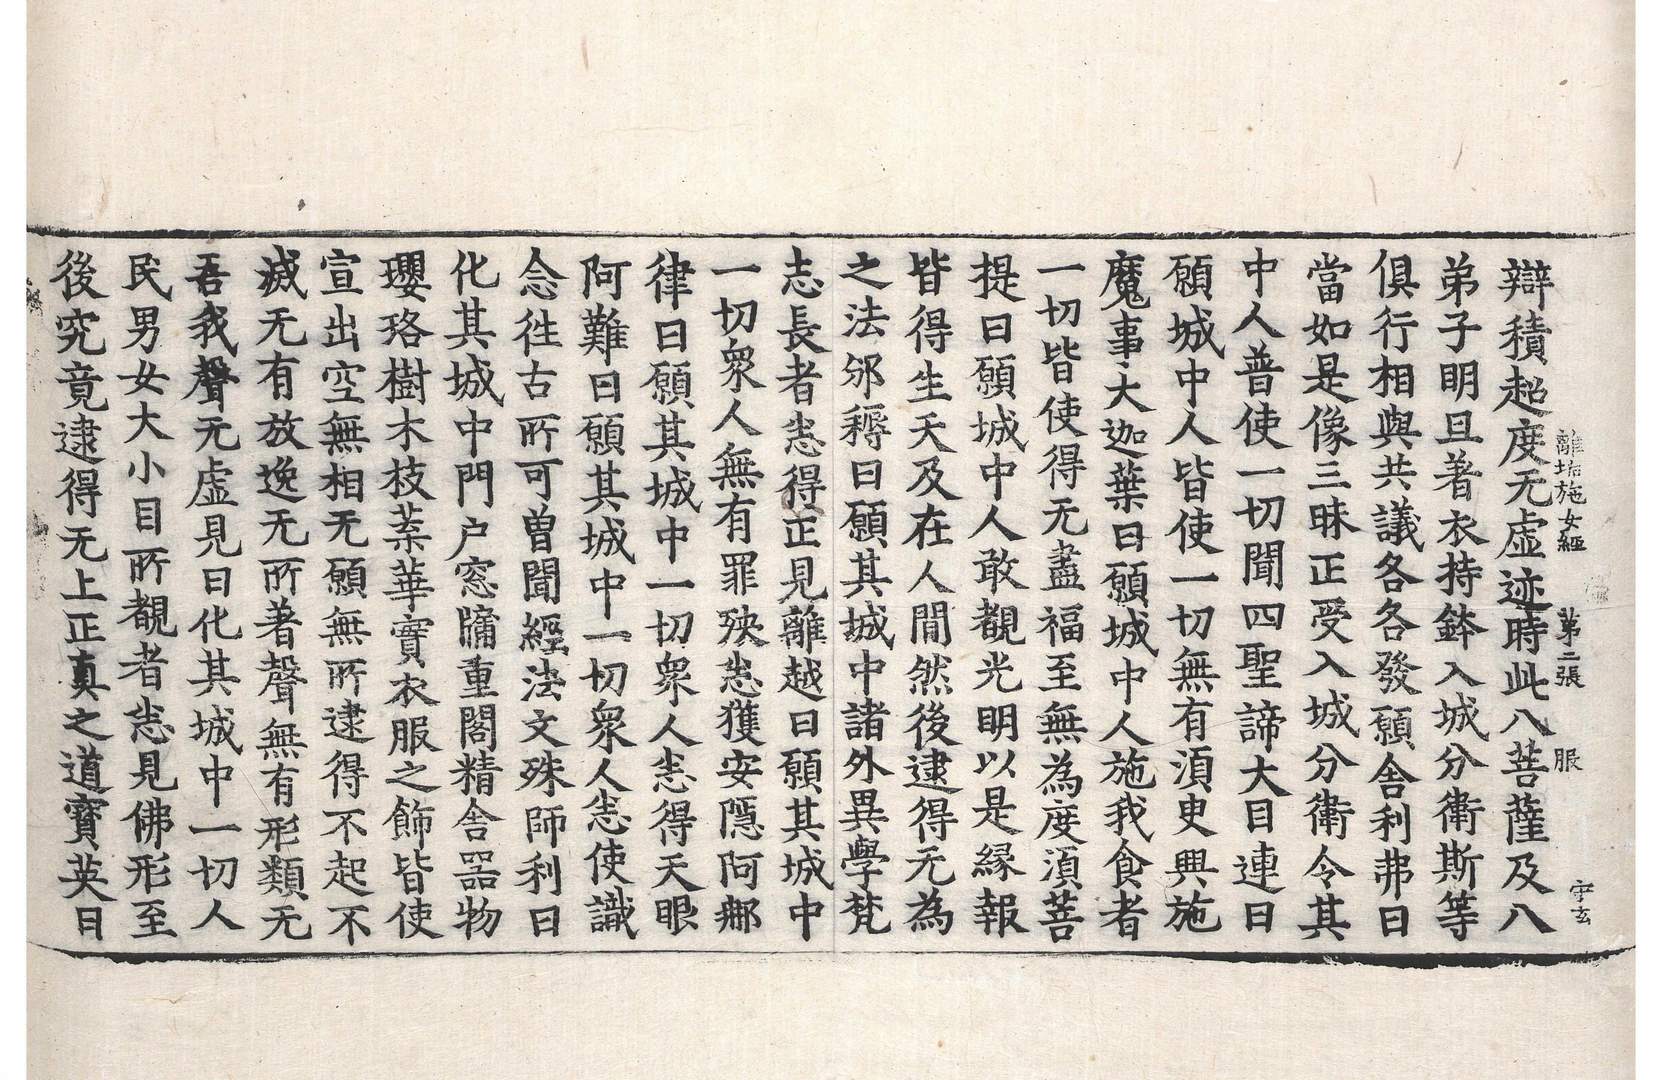 離垢施女經 第二張 服 守玄
辯積超度无虛迹時此八菩薩及八
弟子明旦著衣持鉢入城分衛斯等
俱行相與共議各各發願舍利弗曰
當如是像三昧正受入城分衛令其
中人普使一切聞四聖諦大目連曰
願城中人皆使一切無有須臾興施
魔事大迦葉曰願城中人施我食者
一切皆使得无盡福至無為度須菩
提曰願城中人敢覩光明以是緣報
皆得生天及在人間然後逮得无為
之法邠耨曰願其城中諸外異學梵
志長者悉得正見離越曰願其城中
一切衆人無有罪殃悉獲安隱阿那
律曰願其城中一切衆人悉得天眼
阿難曰願其城中一切衆人悉使識
念徃古所可曾聞經法文殊師利曰
化其城中門户窓牖重閣精舍器物
瓔珞樹木枝葉華實衣服之飾皆使
宣出空無相无願無所逮得不起不
滅无有放逸无所著聲無有形類无
吾我聲无虛見曰化其城中一切人
民男女大小目所覩者悉見佛形至
後究竟逮得无上正真之道寶英曰